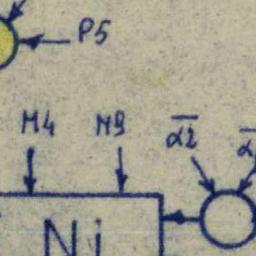 P5
M4 M9 α̅2̅
Ni